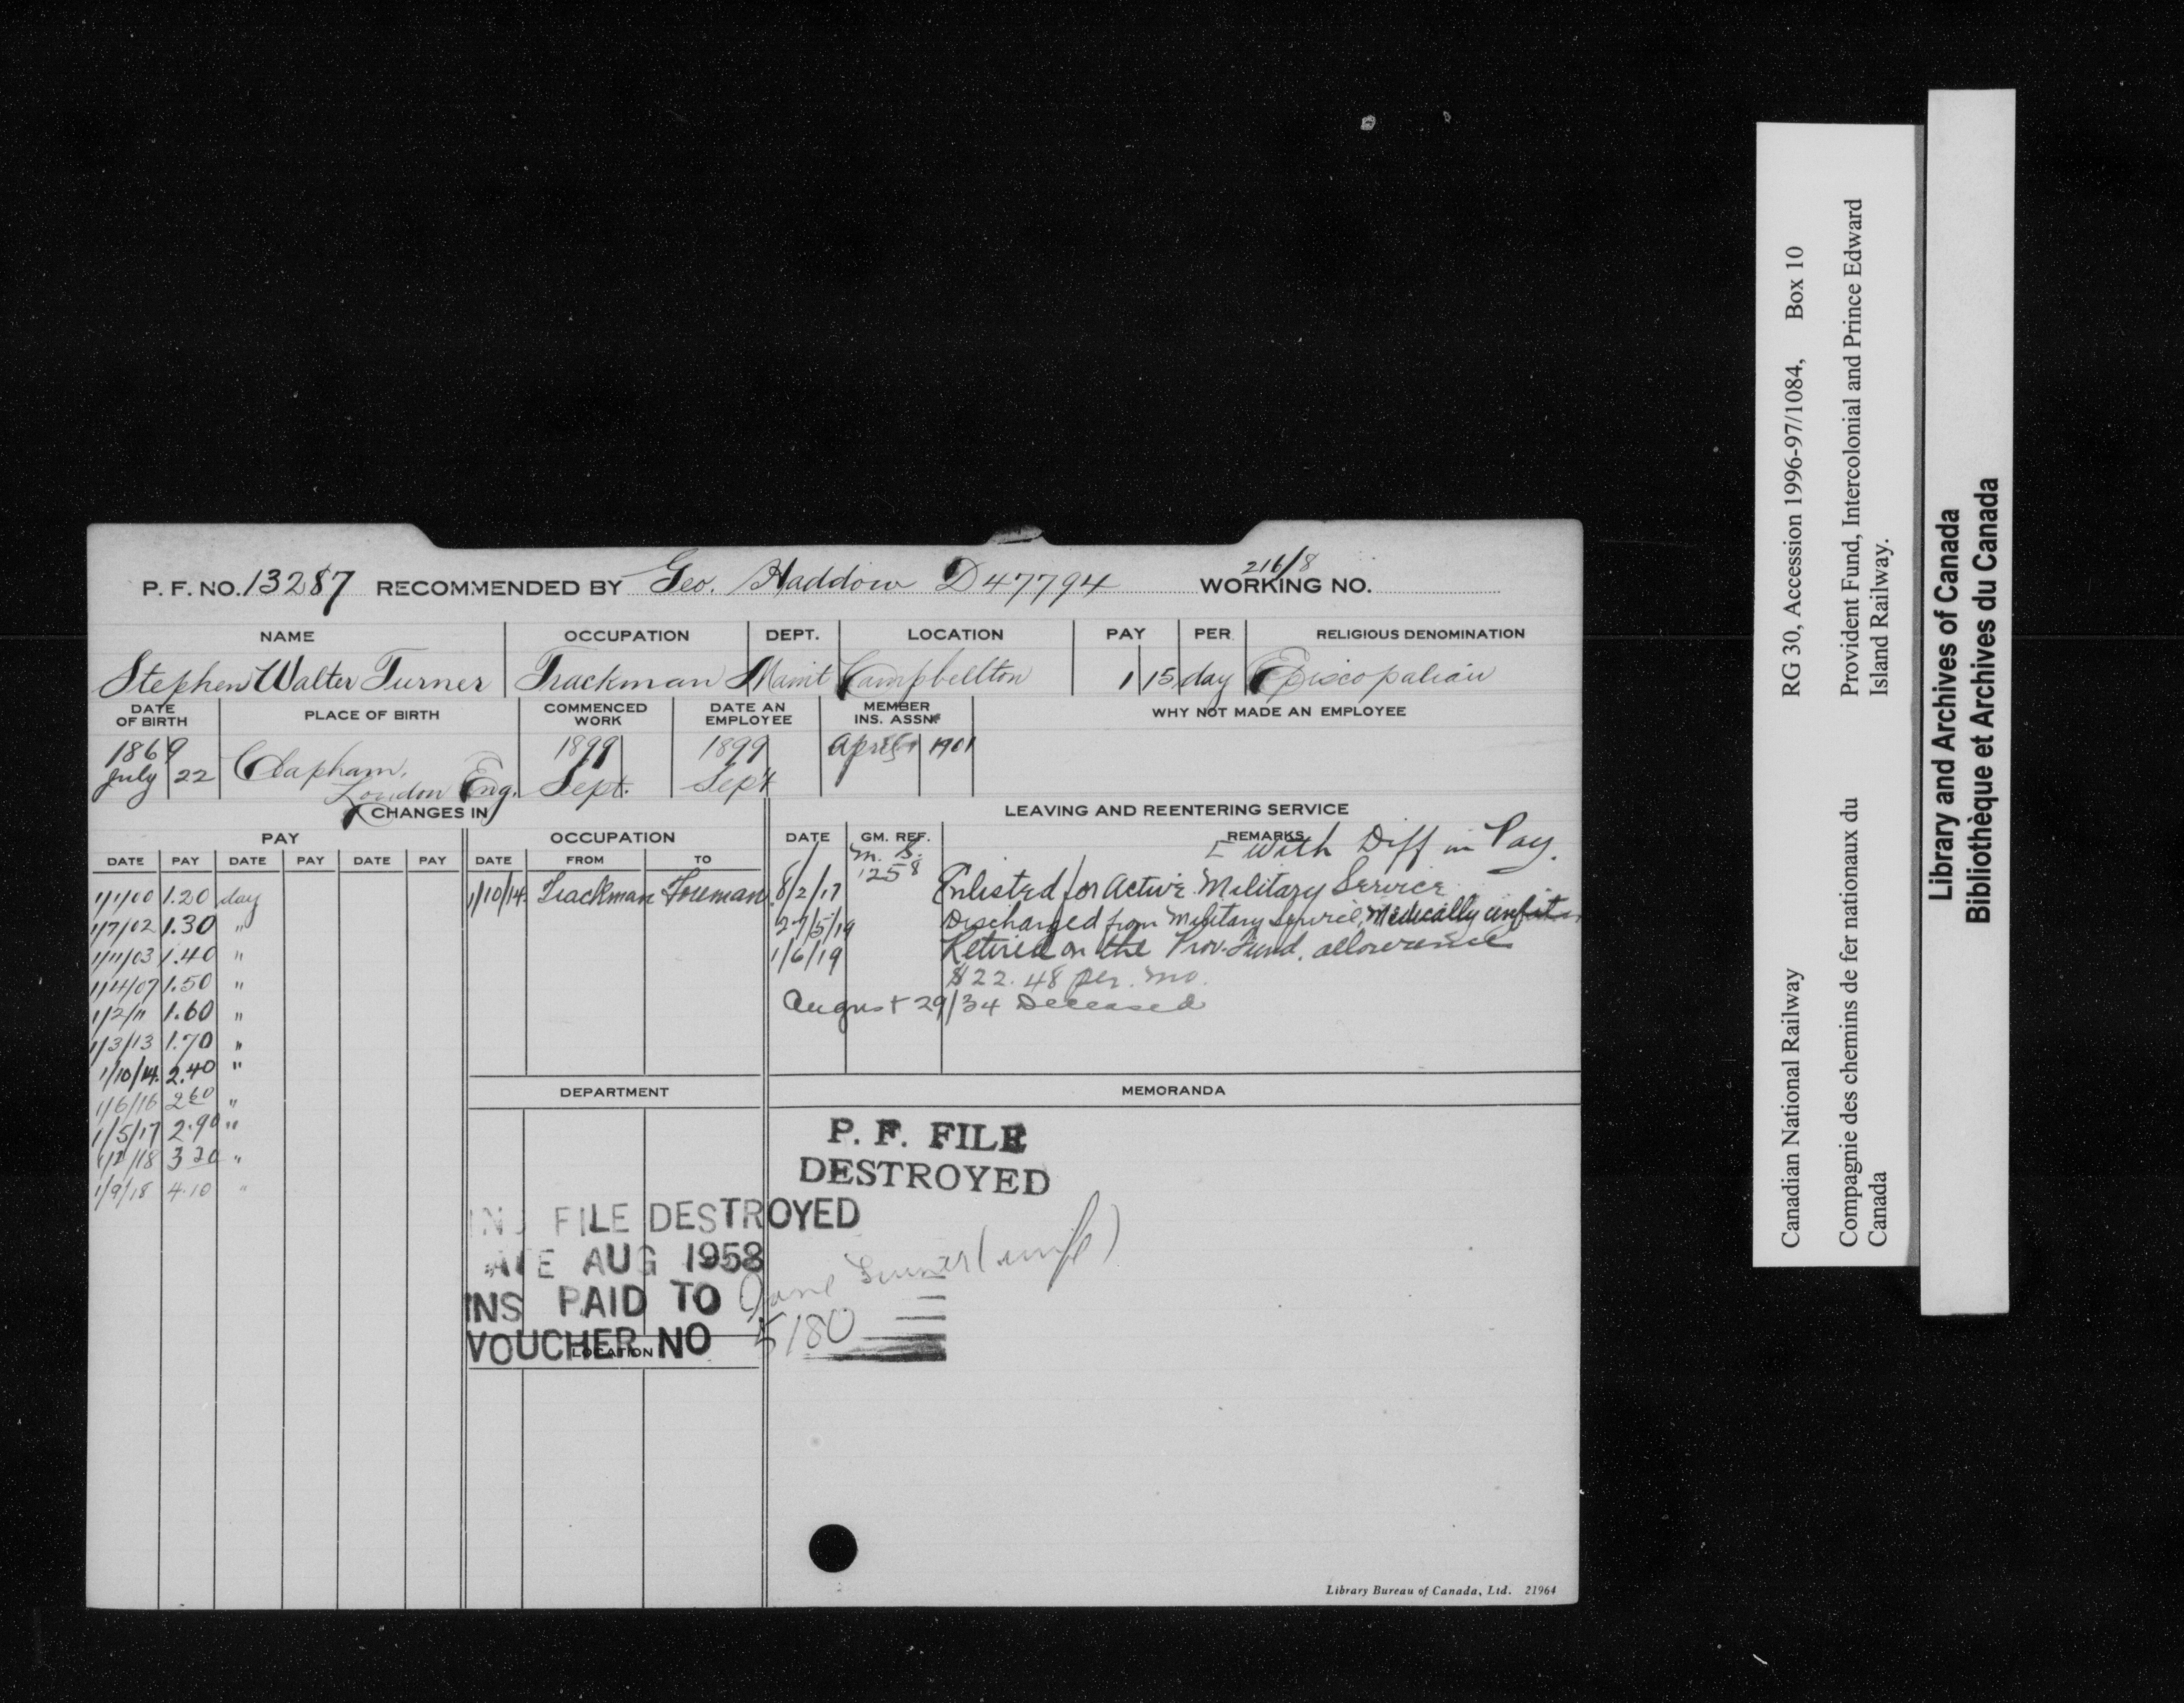 216/8
P. F. NO. 13287 RECOMMENDED BY Geo. Haddow D47794 WORKING NO.
NAME OCCUPATION DEPT. LOCATION PAY PER RELIGIOUS DENOMINATION
Stephen Walter Turner Trackman Maint Campbellton 1 15 day Episcopalian
DATE OF BIRTH PLACE OF BIRTH COMMENCED WORK DATE AN EMPLOYEE MEMBER INS. ASSN. WHY NOT MADE AN EMPLOYEE
1869 1899 1899 April 1901
July 22 Clapham, Sept. Sept
London Eng.
CHANGES IN LEAVING AND REENTERING SERVICE
PAY OCCUPATION DATE GM. REF. REMARKS
With Diff in Pay.
DATE PAY DATE PAY DATE PAY DATE FROM TO
M. S.
1258
1/1/00 1.20 day 1/10/14. Trackman Foreman 8/2/17 Enlisted for Active Military Service
1/7/02 1.30 " 27/5/19 Discharged from Military Service, Medically unfit
1/11/03 1.40 " 1/6/19 Retired on the Prov. Fund. allowance
1/4/07 1.50 " $22.48 per. mo.
1/2/11 1.60 " August 29/34 Deceased
1/3/13 1.70 "
1/10/14. 2.40 "
1/6/16 2 60 "
1/5/17 2.90 "
1/2/18 3 20 "
1/9/18 4.10 "
DEPARTMENT MEMORANDA
P. F. FILE
DESTROYED
FILE DESTROYED
AUG 1958
INS PAID TO Jane Turner (wife)
VOUCHER NO 5180
LOCATION
Library Bureau of Canada, Ltd. 21964
Canadian National Railway RG 30, Accession 1996-97/1084, Box 10
Compagnie des chemins de fer nationaux du
Canada
Provident Fund, Intercolonial and Prince Edward
Island Railway.
Library and Archives of Canada
Bibliothèque et Archives du Canada